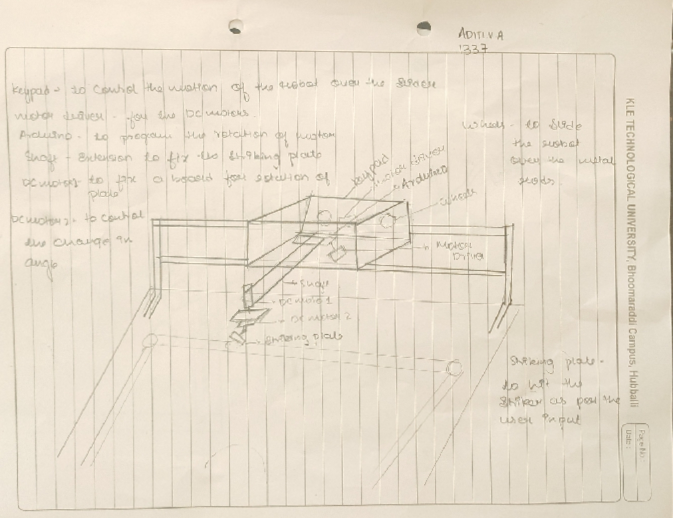 ADITI V A
1337
Keypad - to control the motion of the robot over the
motor driver - for the DC motors.
Arduino - to program the rotation of motor
Shaft - Extension to fix the Striking plate
DC motor 1 - to fix a board for rotation of
plate
DC motor 2 - to control
the change in
angle
Wheels - to Slide
the robot
over the metal
rods.
keypad
motor driver
Arduino
wheels
motor
Driver
Shaft
DC motor 1
DC motor 2
Striking plate
Striking plate -
to hit the
Striker as per the
user input
KLE TECHNOLOGICAL UNIVERSITY, Bhoomaraddi Campus, Hubballi
Page No:
Date: